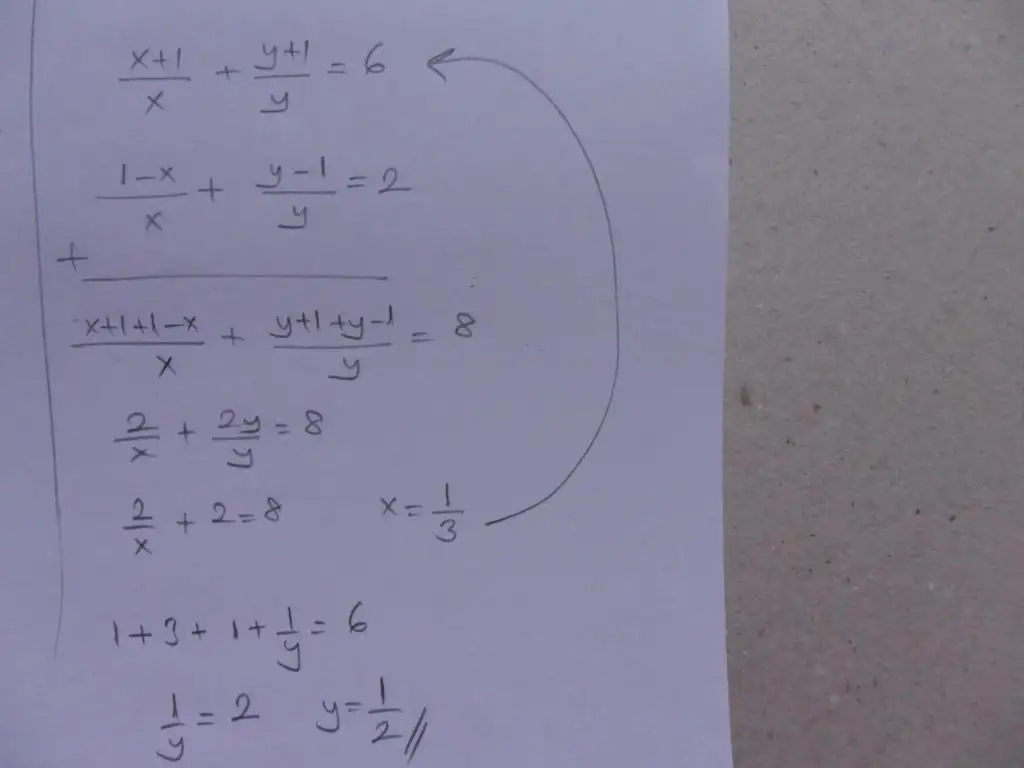 x+1/x + y+1/y = 6
1-x/x + y-1/y = 2
+
x+1+1-x/x + y+1+y-1/y = 8
2/x + 2y/y = 8
2/x + 2 = 8 x = 1/3
1+3+1+1/y = 6
1/y = 2 y = 1/2 //